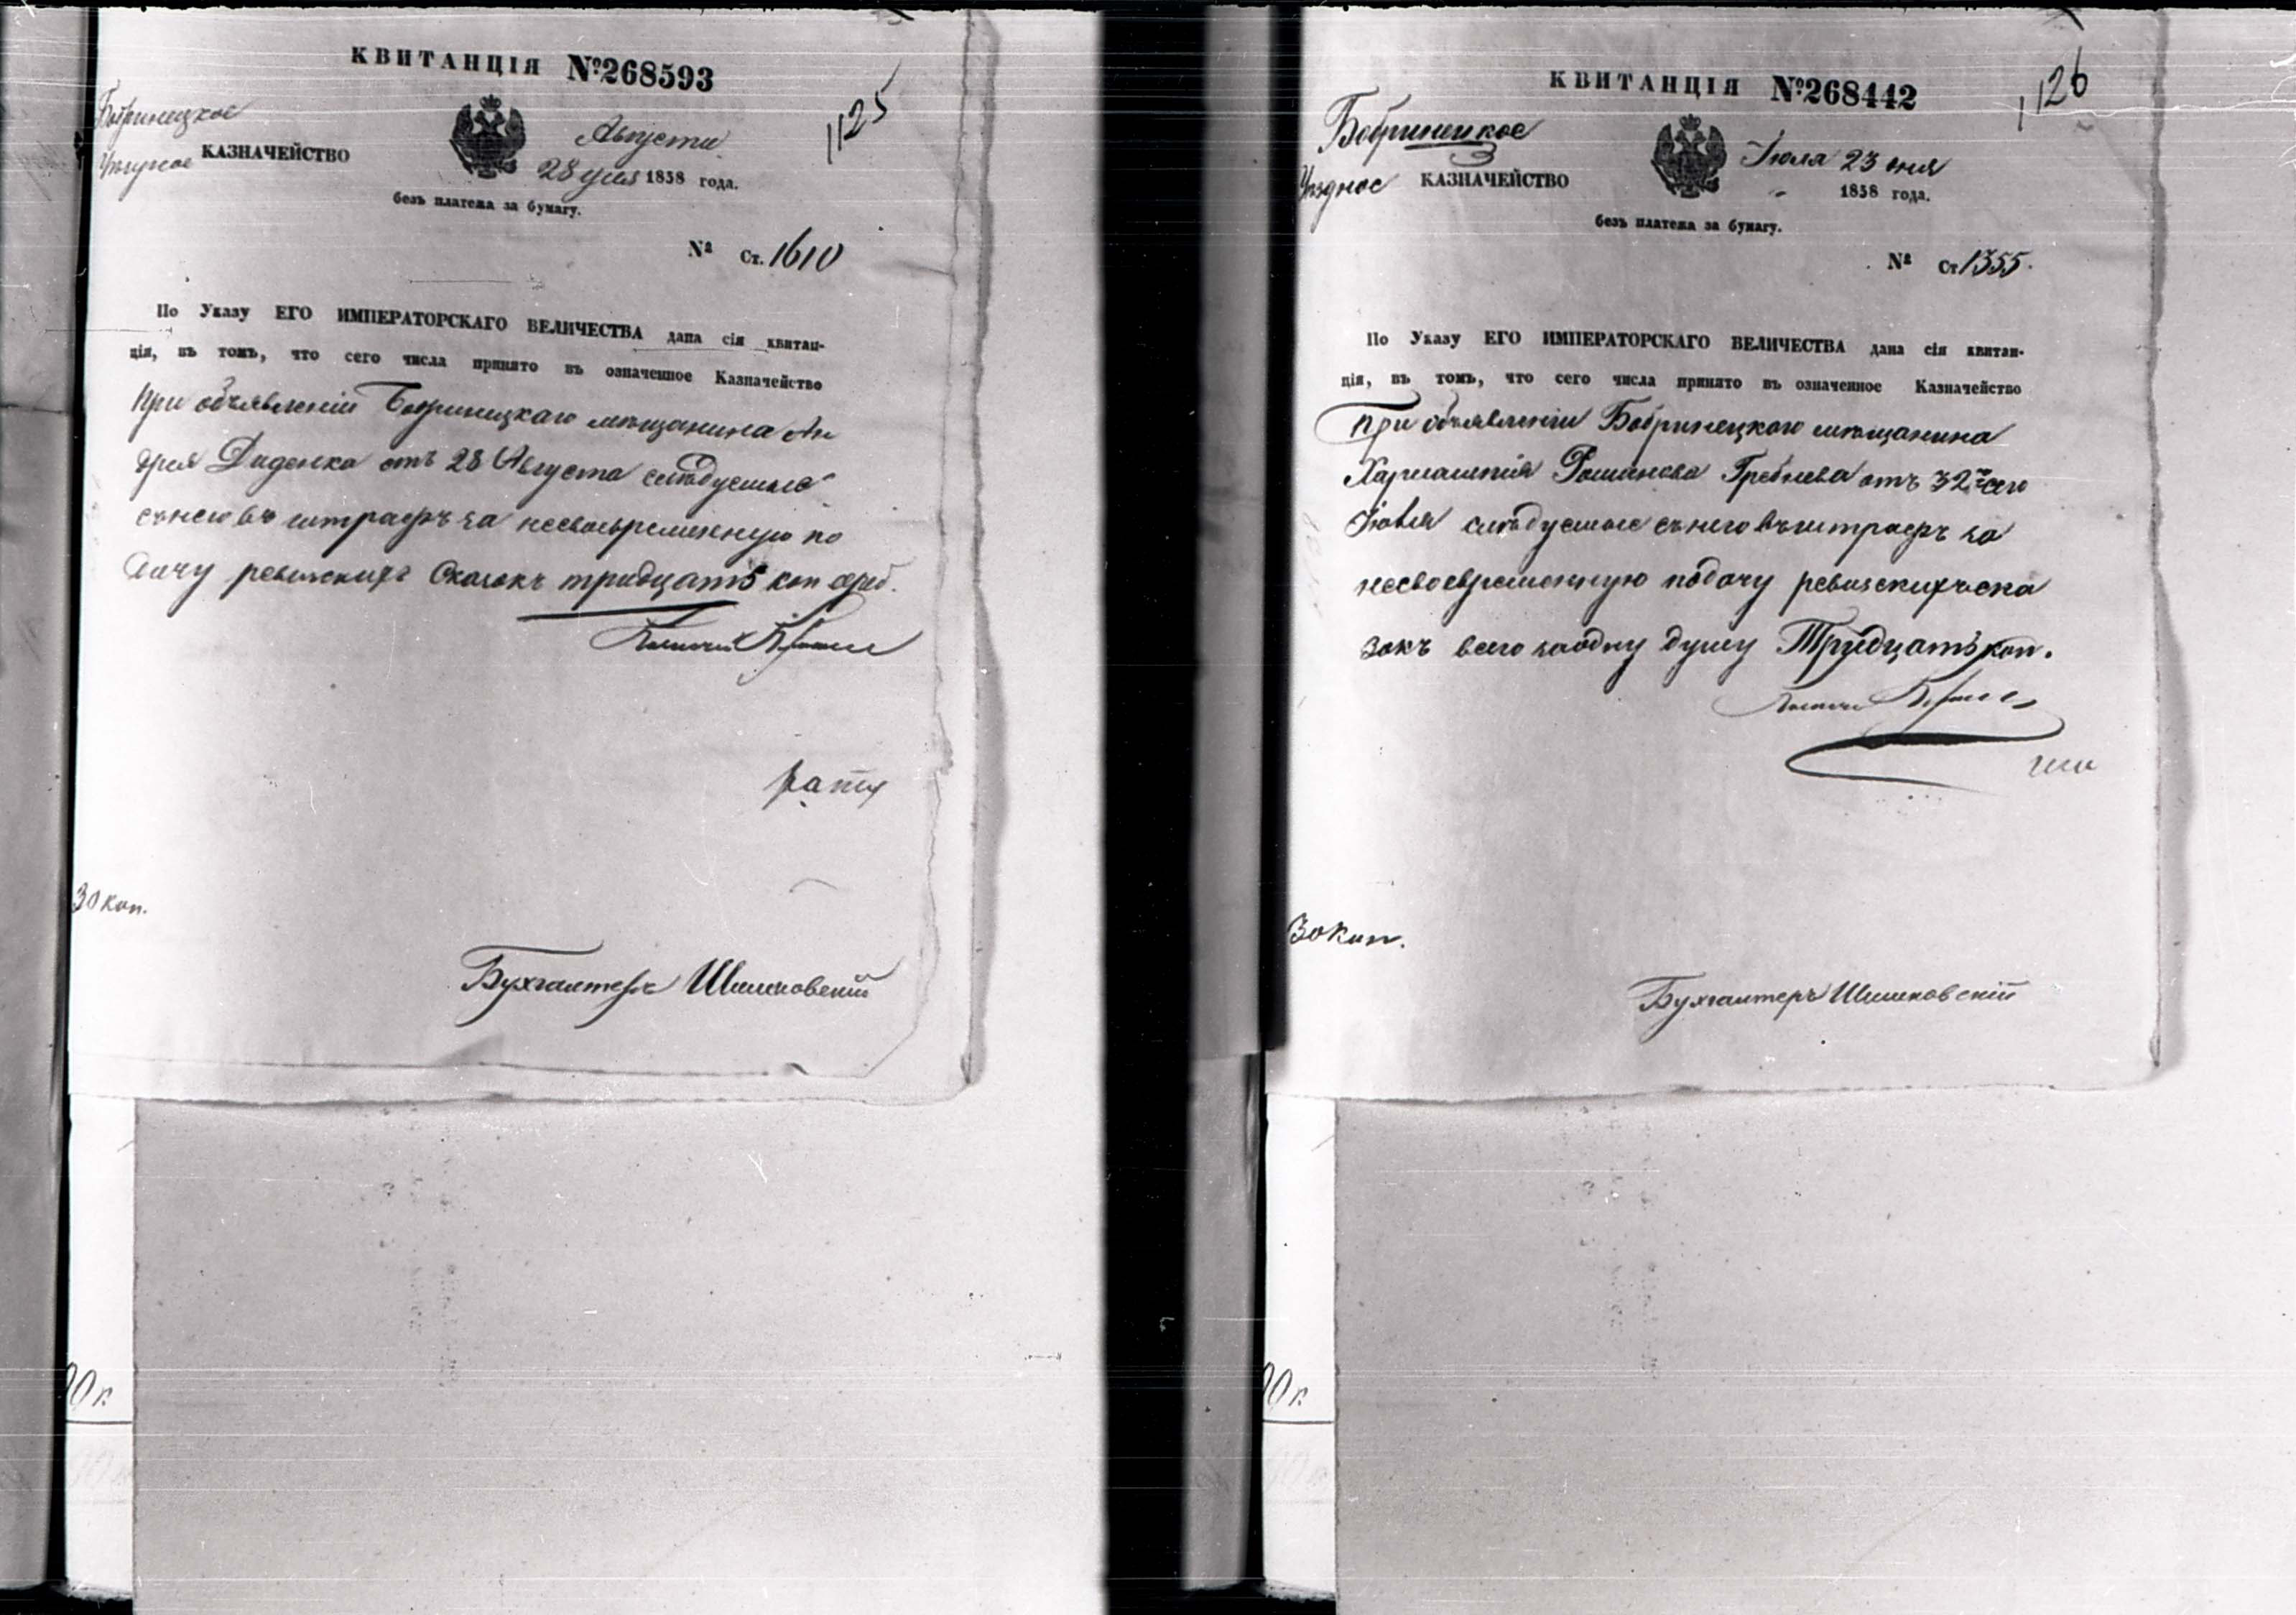 КВИТАНЦІЯ №268593
1125
Бобринецкое
Уѣздное КАЗНАЧЕЙСТВО
Августа
28 дня 1858 года.
безъ платежа за бумагу.
№ Ст. 1610
По Указу ЕГО ИМПЕРАТОРСКАГО ВЕЛИЧЕСТВА дана сія квитан-
ція, въ томъ, что сего числа принято въ означенное Казначейство
при объявленіи Бобринецкаго мѣщанина Ан
дрея Диденка отъ 28 Августа слѣдуемые
съ него въ штрафъ за несвоевременную по
дачу ревизскихъ Сказокъ тридцать коп сереб.
30 коп.
Бухгалтеръ Шишковскій
0 к
КВИТАНЦІЯ №268442
1126
Бобринецкое
Уѣздное КАЗНАЧЕЙСТВО
Іюля 23 дня
1858 года.
безъ платежа за бумагу.
№ Ст 1355.
По Указу ЕГО ИМПЕРАТОРСКАГО ВЕЛИЧЕСТВА дана сія квитан-
ція, въ томъ, что сего числа принято въ означенное Казначейство
При объявленіи Бобринецкого мѣщанина
Харлампія Романова Гребнева отъ сего
Іюля слѣдуемые съ него въ штрафъ за
несвоевременную подачу ревизскихъ ска
зокъ всего за одну душу Тридцать коп.
30 коп.
Бухгалтеръ Шишковскій
0 к